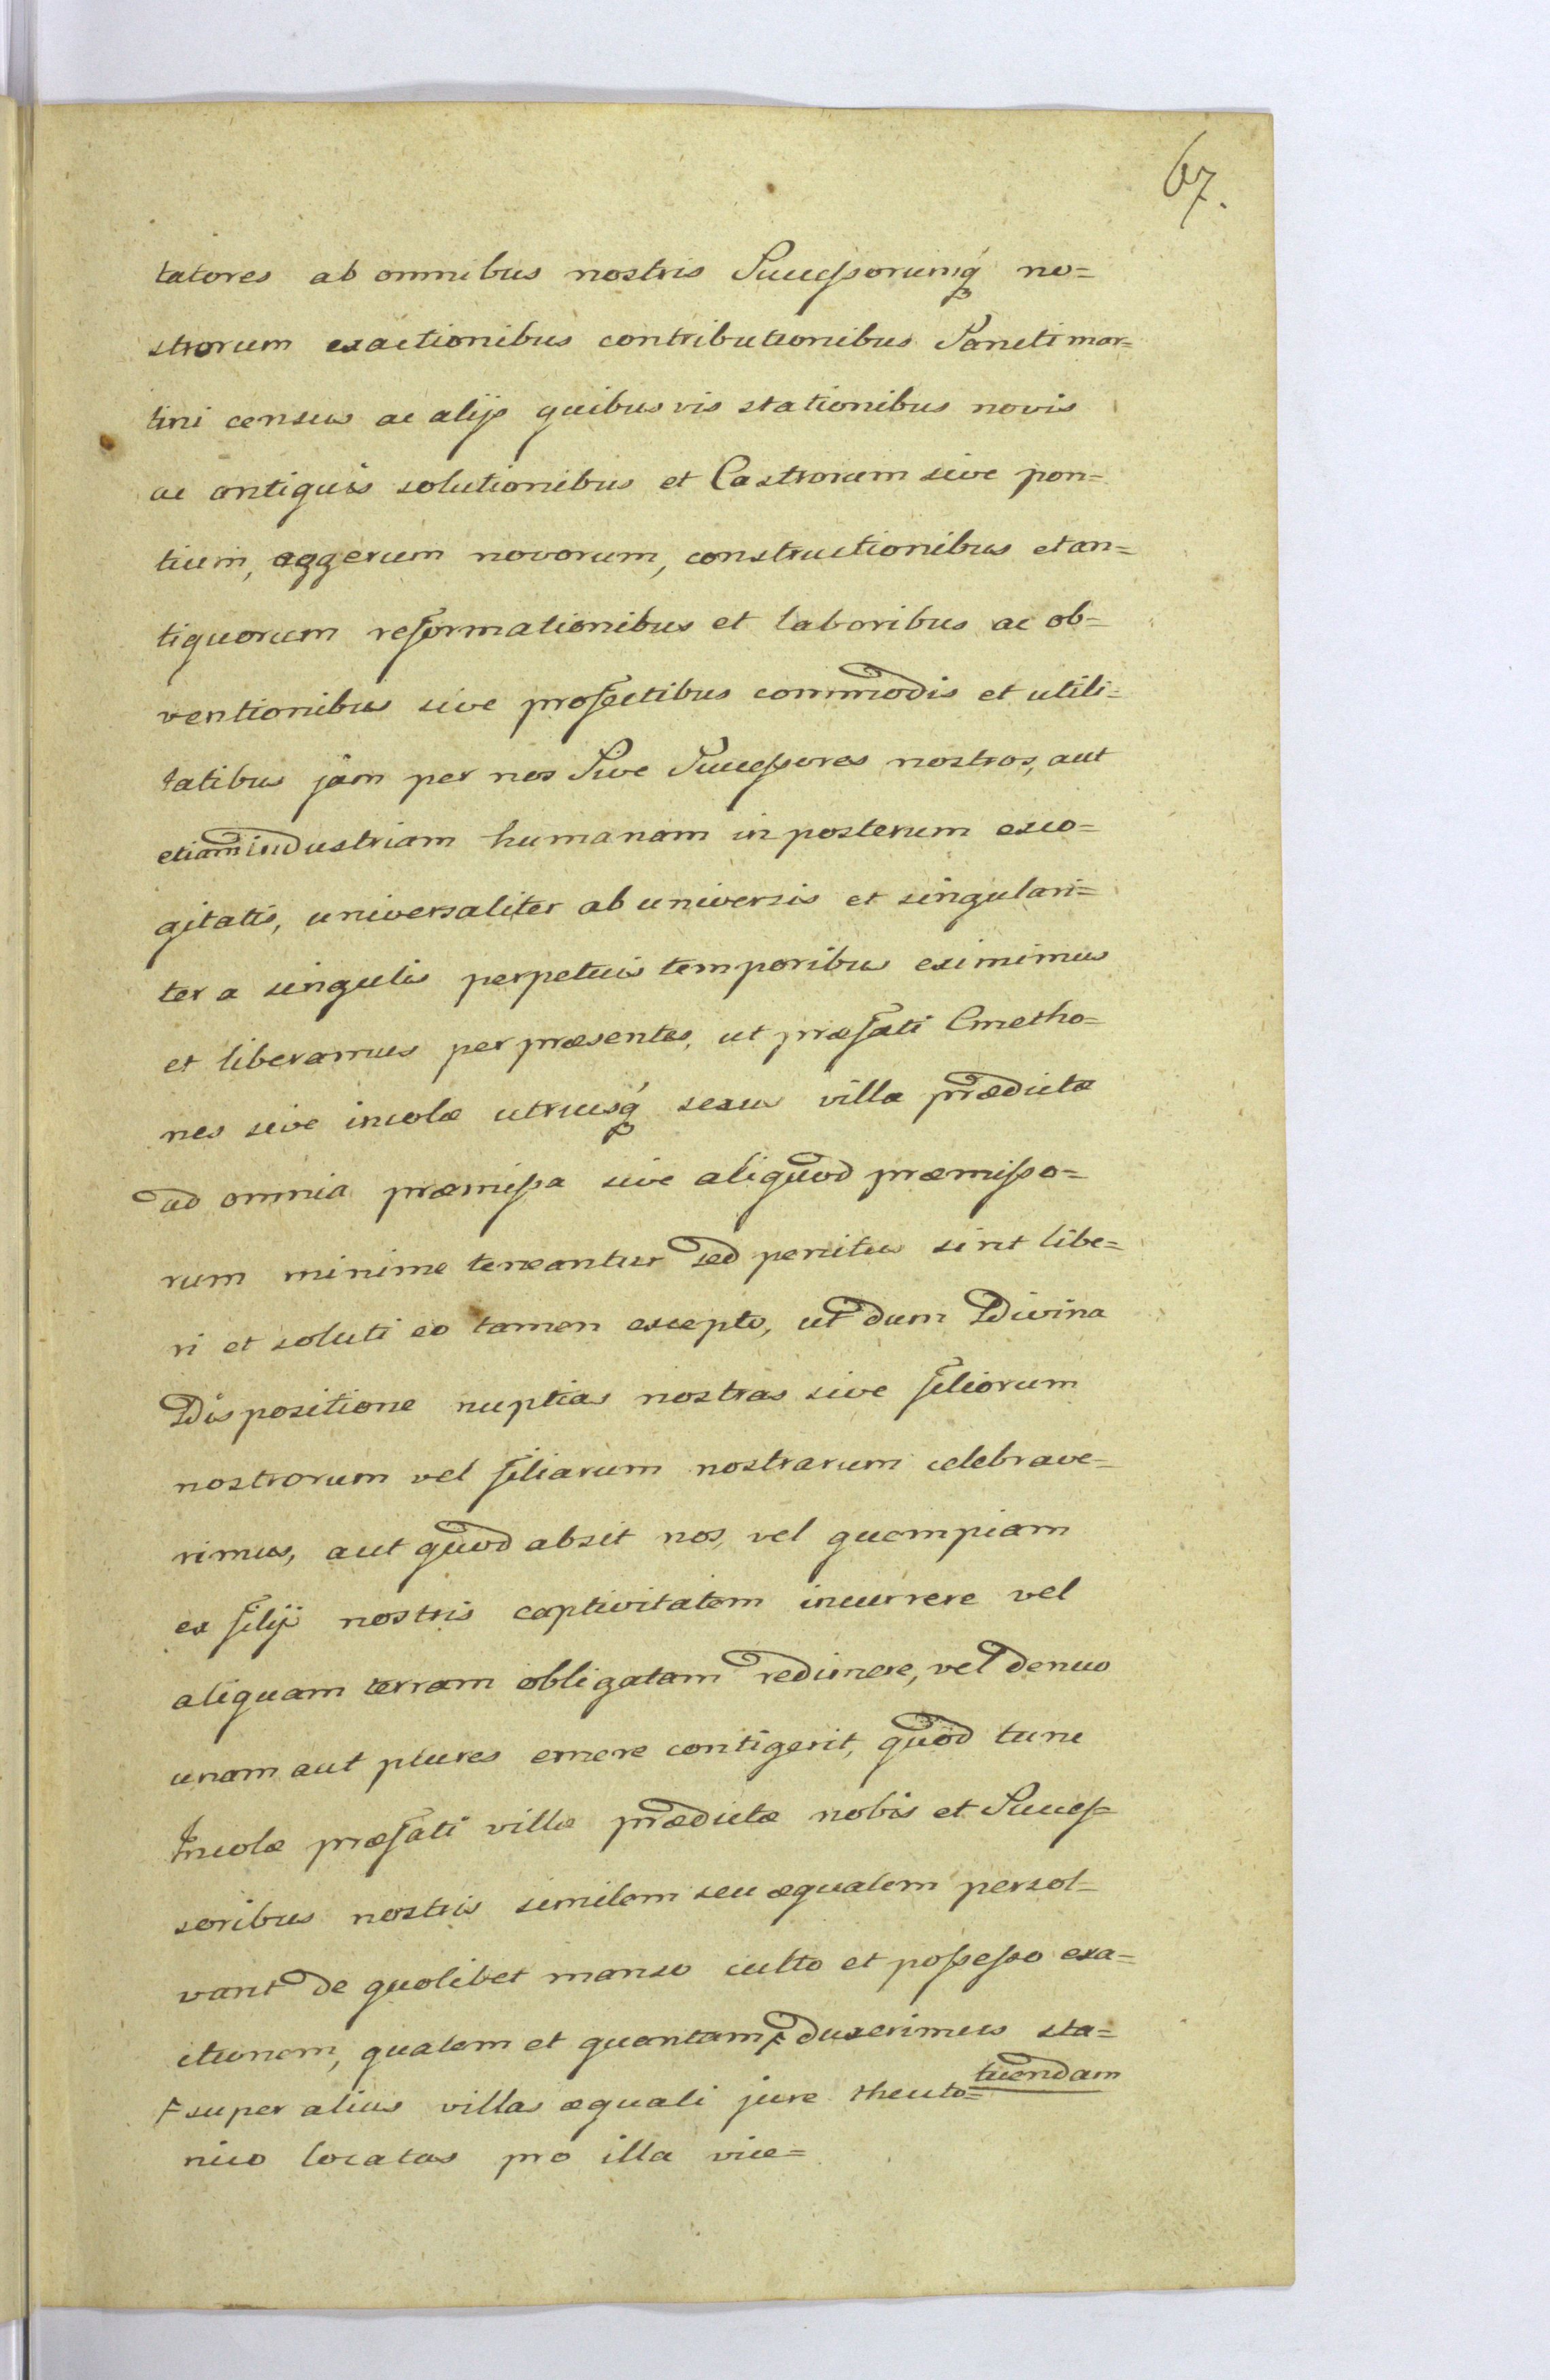 67.
tatores ab omnibus nostris Successorumq́ no=
strorum exactionibus contributionibus Sancti mar=
tini census ac alijs quibus vis stationibus novis
ac antiquis solutionibus et Castrorum sive pon=
tium, aggerum novorum, constructionibus et an=
tiquorum reformationibus et laboribus ac ob=
ventionibus sive profectibus commodis et utili=
tatibus jam per nos Sive Successores nostros, aut
etiam industriam humanam in posterum exco=
gitatis, universaliter ab universis et singulari=
ter a singulis perpetuis temporibus eximimus
et liberamus per præsentes, ut præfati Cmetho=
nes sive incolæ utriusq́ sexus villa prædictæ
ad omnia præmissa sive aliquod præmisso=
rum minime teneantur sed penitus sint libe=
ri et soluti eo tamen excepto, ut dum Divina
Dispositione nuptias nostras sive filiorum
nostrorum vel filiarum nostrarum celebrave=
rimus, aut quod absit nos, vel quempiam
ex filijs nostris captivitatem incurrere vel
aliquam terram obligatam redimere, vel denuo
unam aut plures emere contigerit, quod tunc
Incolæ præfati villæ prædictæ nobis et Succes=
soribus nostris similem seu æqualem persol=
vant de quolibet manso culto et possesso exa=
ctionem, qualem et quantam duxerimus sta=
tuendam
super alias villas æquali jure theuto=
nico locatas pro illa vice=